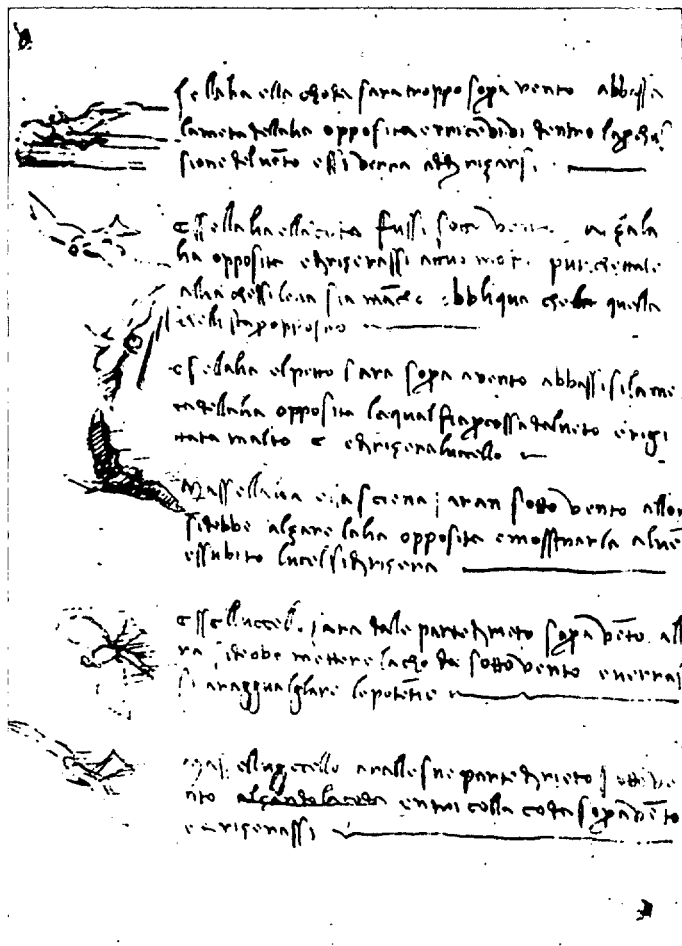 sellalia ella choda sara troppo sopra vento abbassa
lameta dellalia opposita erricevi di dentro laperchus
sione del vento essi verra addirizarsi
esse llalia ella coda fussi sotto vento alza la
lia opposita edirizerassi attuo modo purche tale
alia chessi leva sia mancho obbliqua che quella
chelli sta opposito
esellalia el petto sara sopra avento abbassisi lame
ta dellalia opposita laqual fia percossa dal vento erigi
ttata inalto e edirizera lucello
Massellalia ella sciena saran sotto vento allor
sidebbe alzare lalia opposita emosstrarla alven
essubito lucel sidirizera
esse lluccello sara dale parte dirieto sopra vento all
ra si debe mettere la choda sotto vento everras
si araggualglare le potentie
Ma se lluccello aralle sue parte dirieto sotto ve
nto alzando la coda entri colla coda sopra vento
edirizerassi